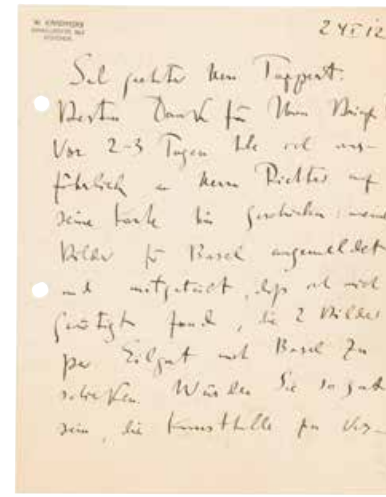 W. KANDINSKY
24 VI 12
Sehr geehrter Herr Tappert.
Besten Dank für Ihren Brief.
Vor 2–3 Tagen habe ich aus-
führlich an Herrn Richter auf
seine Karte hin geschrieben: meine
Bilder für Basel angemeldet
und mitgeteilt, daß ich mich
genötigt fand, die 2 Bilder
per Eilgut nach Basel zu
schicken. Würden Sie so gut
sein, die Kunsthalle zu